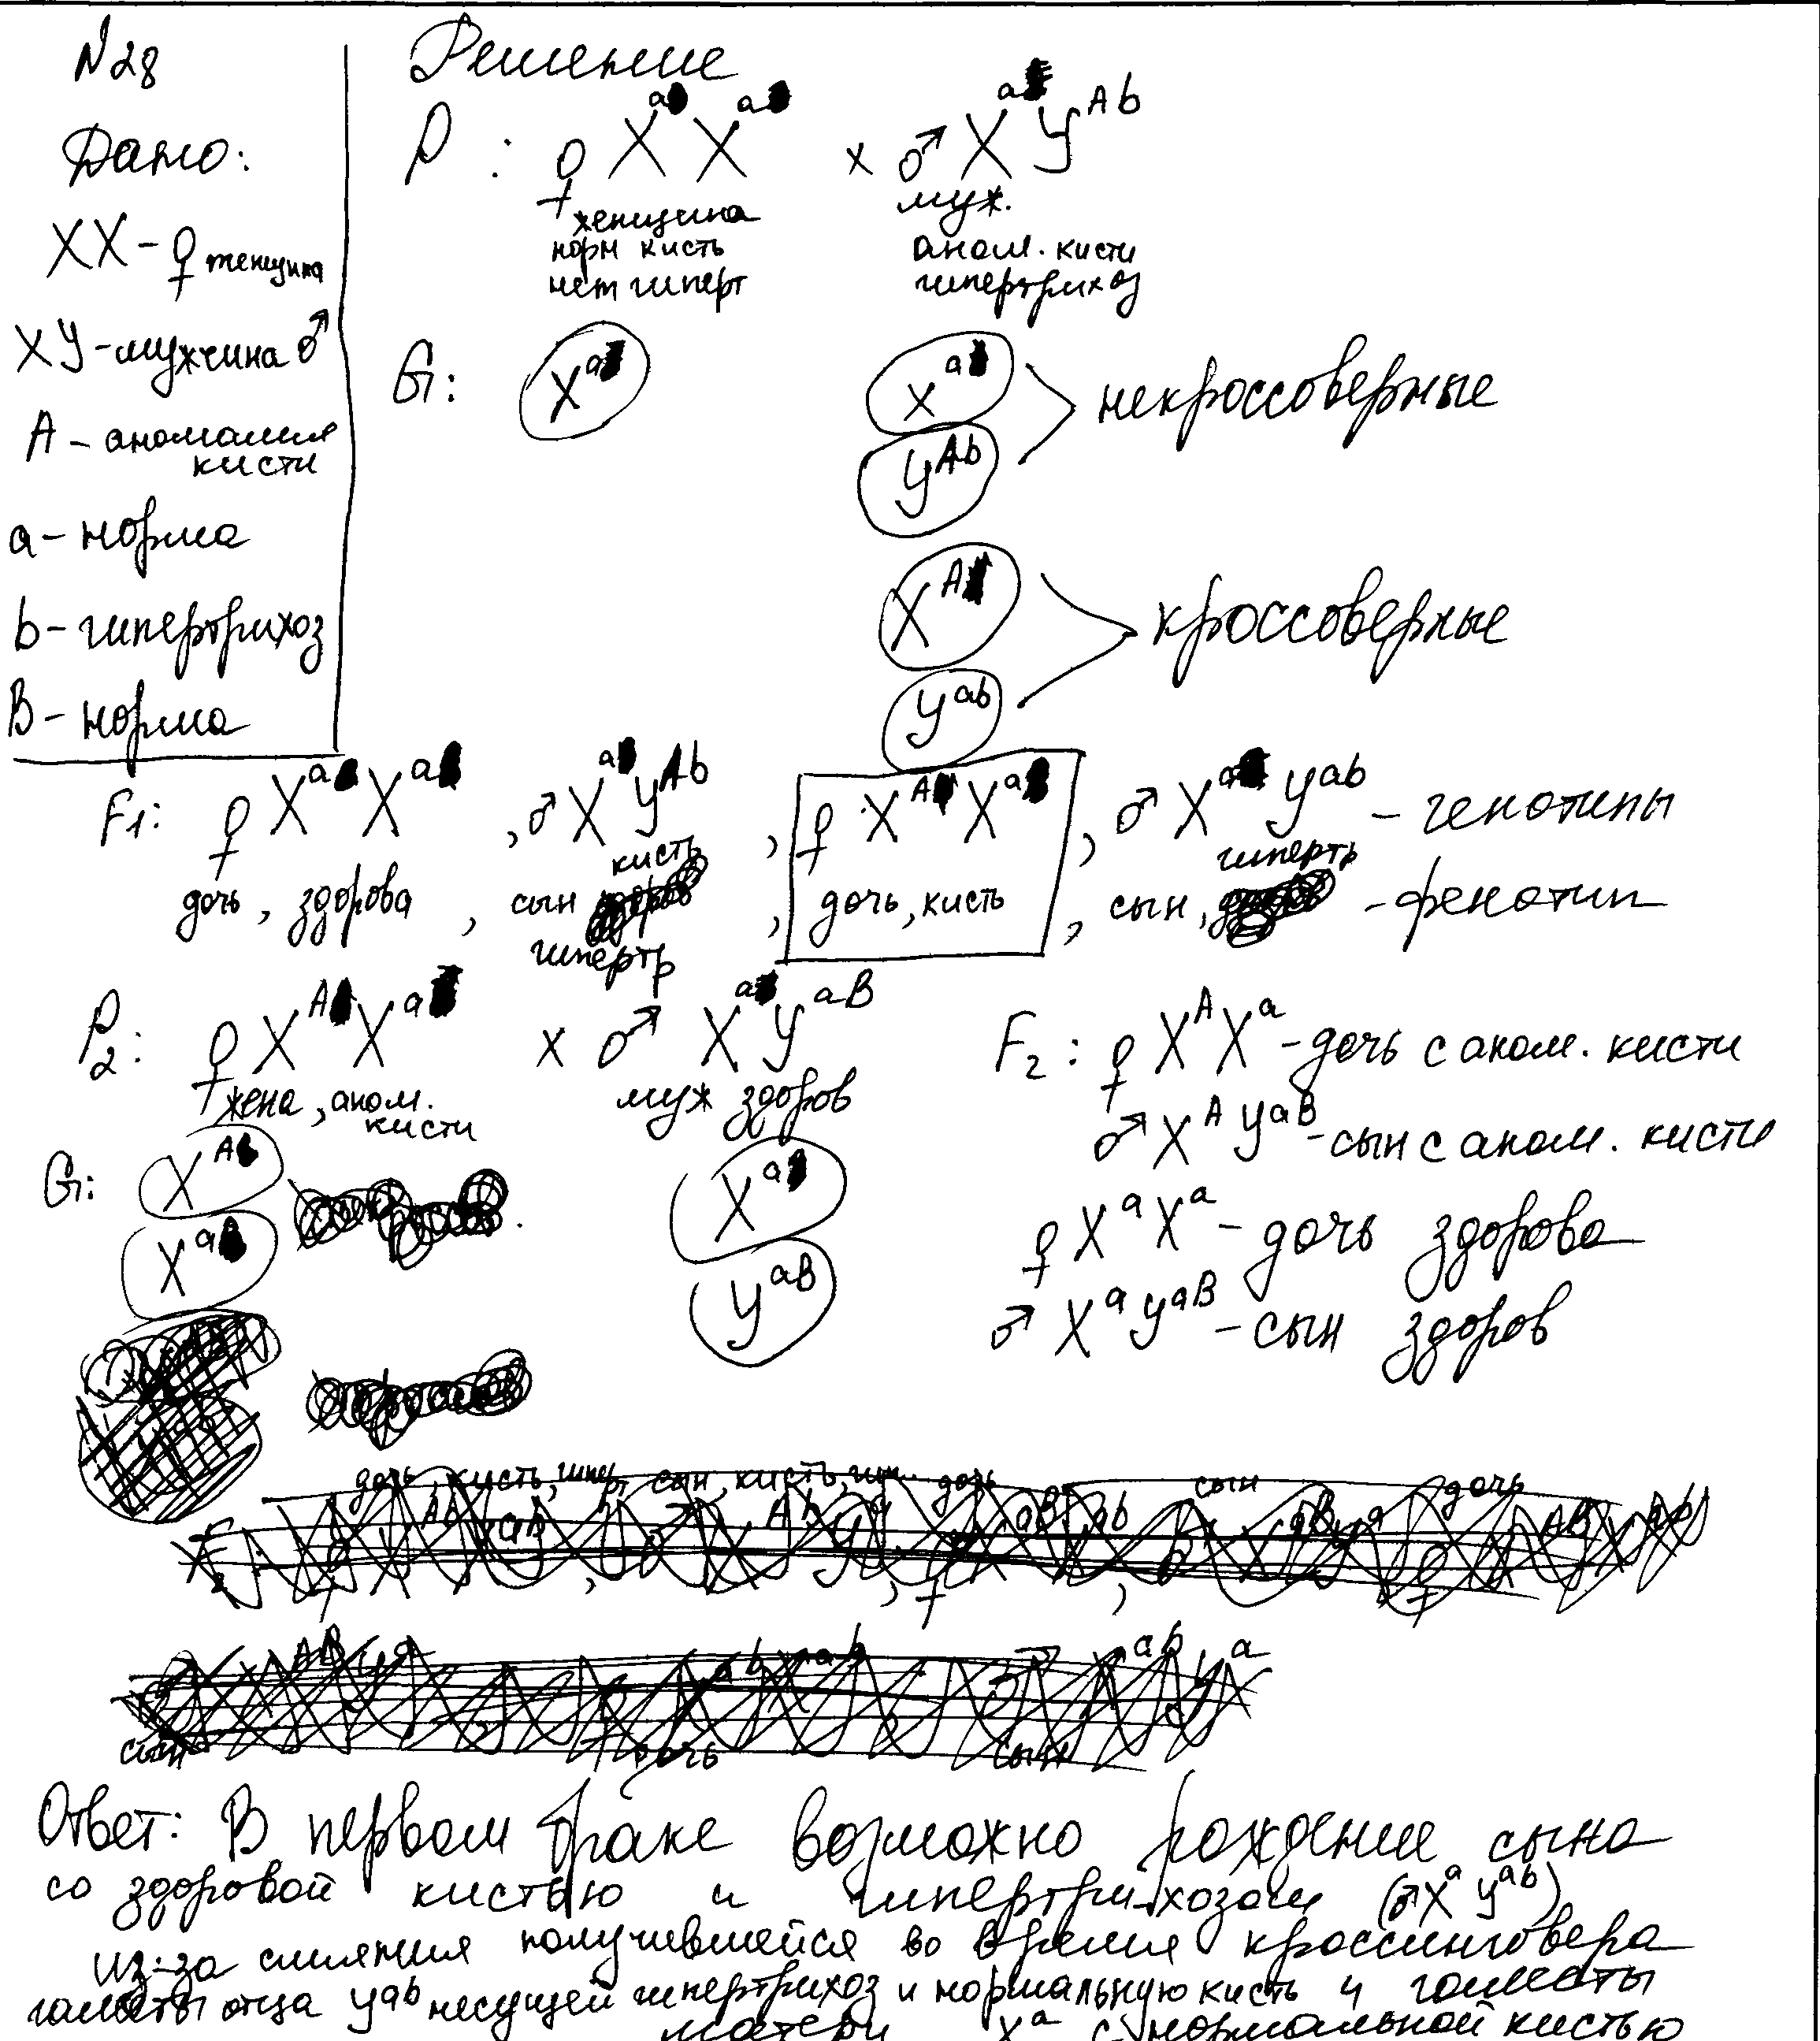 N28
Дано:
XX - ♀ женщина
XY - мужчина ♂
A - аномалия
кисти
a - норма
b - гипертрихоз
B - норма
Решение
P : ♀ X^a X^a x ♂ X^a Y^Ab
женщина муж.
норм кисть аном. кисти
нет гиперт гипертрихоз
G: X^a X^a некроссоверные
Y^Ab
X^A кроссоверные
Y^ab
F1: ♀ X^a X^a , ♂ X^a Y^Ab , ♀ X^A X^a , ♂ X^a Y^ab - генотипы
кисть гипертр
дочь, здорова , сын , дочь, кисть , сын, - фенотип
гипертр
P2: ♀ X^A X^a x ♂ X^a Y^aB
жена, аном. муж здоров
кисти
G: X^A X^a
X^a Y^aB
F2: ♀ X^A X^a - дочь с аном. кисти
♂ X^A Y^aB - сын с аном. кисти
♀ X^a X^a - дочь здорова
♂ X^a Y^aB - сын здоров
Ответ: В первом браке возможно рождение сына
со здоровой кистью и гипертрихозом (♂ X^a Y^ab)
из-за слияния получившейся во время кроссинговера
гаметы отца Y^ab несущей гипертрихоз и нормальную кисть и гаметы
матери X^a с нормальной кистью